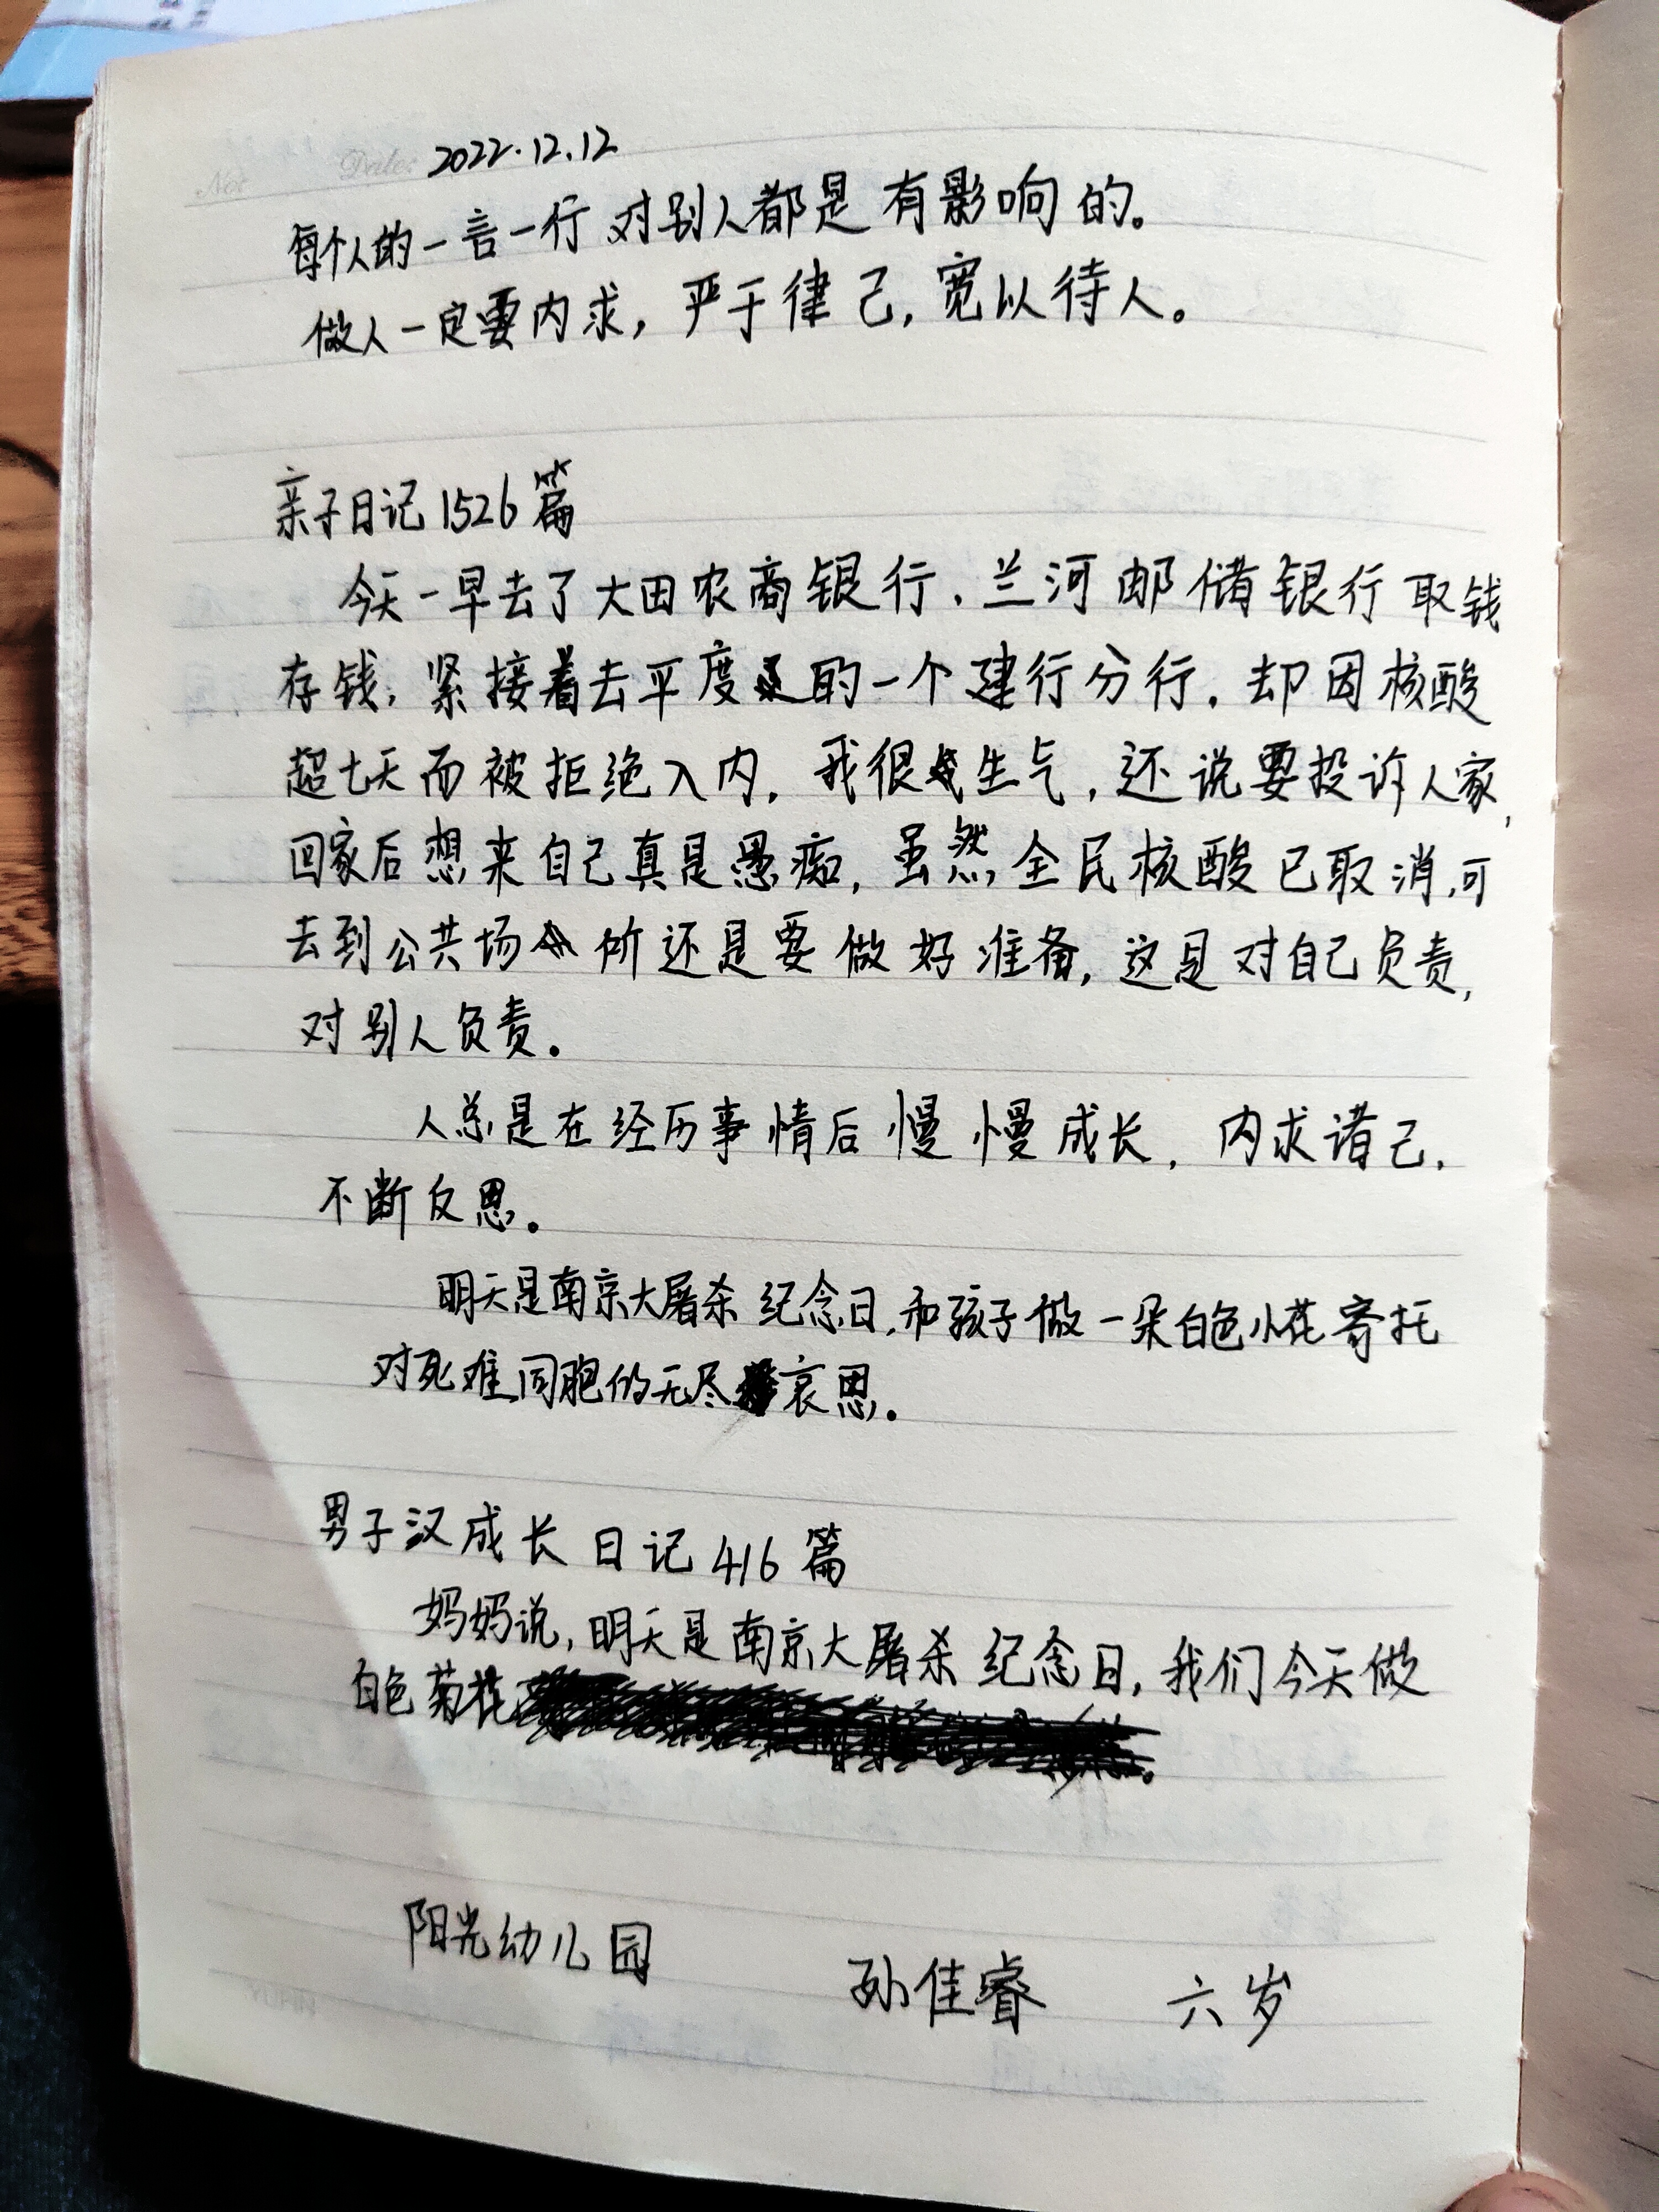 Date: 2022.12.12
每个人的一言一行对别人都是有影响的。
做人一定要内求，严于律己，宽以待人。
亲子日记1526篇
今天一早去了大田农商银行、兰河邮储银行取钱
存钱，紧接着去平度的一个建行分行，却因核酸
超七天而被拒绝入内，我很生气，还说要投诉人家，
回家后想来自己真是愚痴，虽然全民核酸已取消，可
去到公共场所还是要做好准备，这是对自己负责，
对别人负责。
人总是在经历事情后慢慢成长，内求诸己，
不断反思。
明天是南京大屠杀纪念日，和孩子做一朵白色小花寄托
对死难同胞的无尽哀思。
男子汉成长日记416篇
妈妈说，明天是南京大屠杀纪念日，我们今天做
白色菊花
阳光幼儿园 孙佳睿 六岁